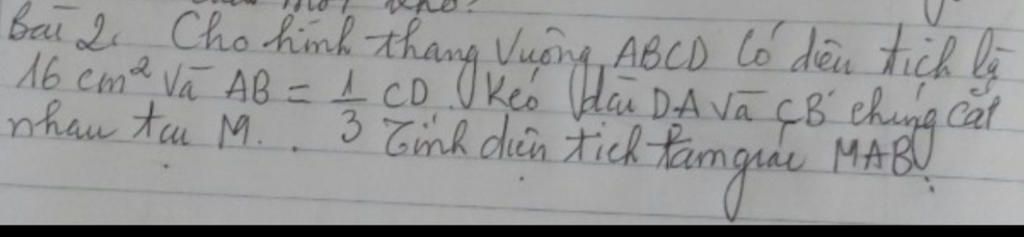 Bài 2. Cho hình thang vuông ABCD có diện tích là
16 cm² và AB = 1/3 CD. Kéo dài DA và CB chúng cắt
nhau tại M. Tính diện tích tam giác MAB